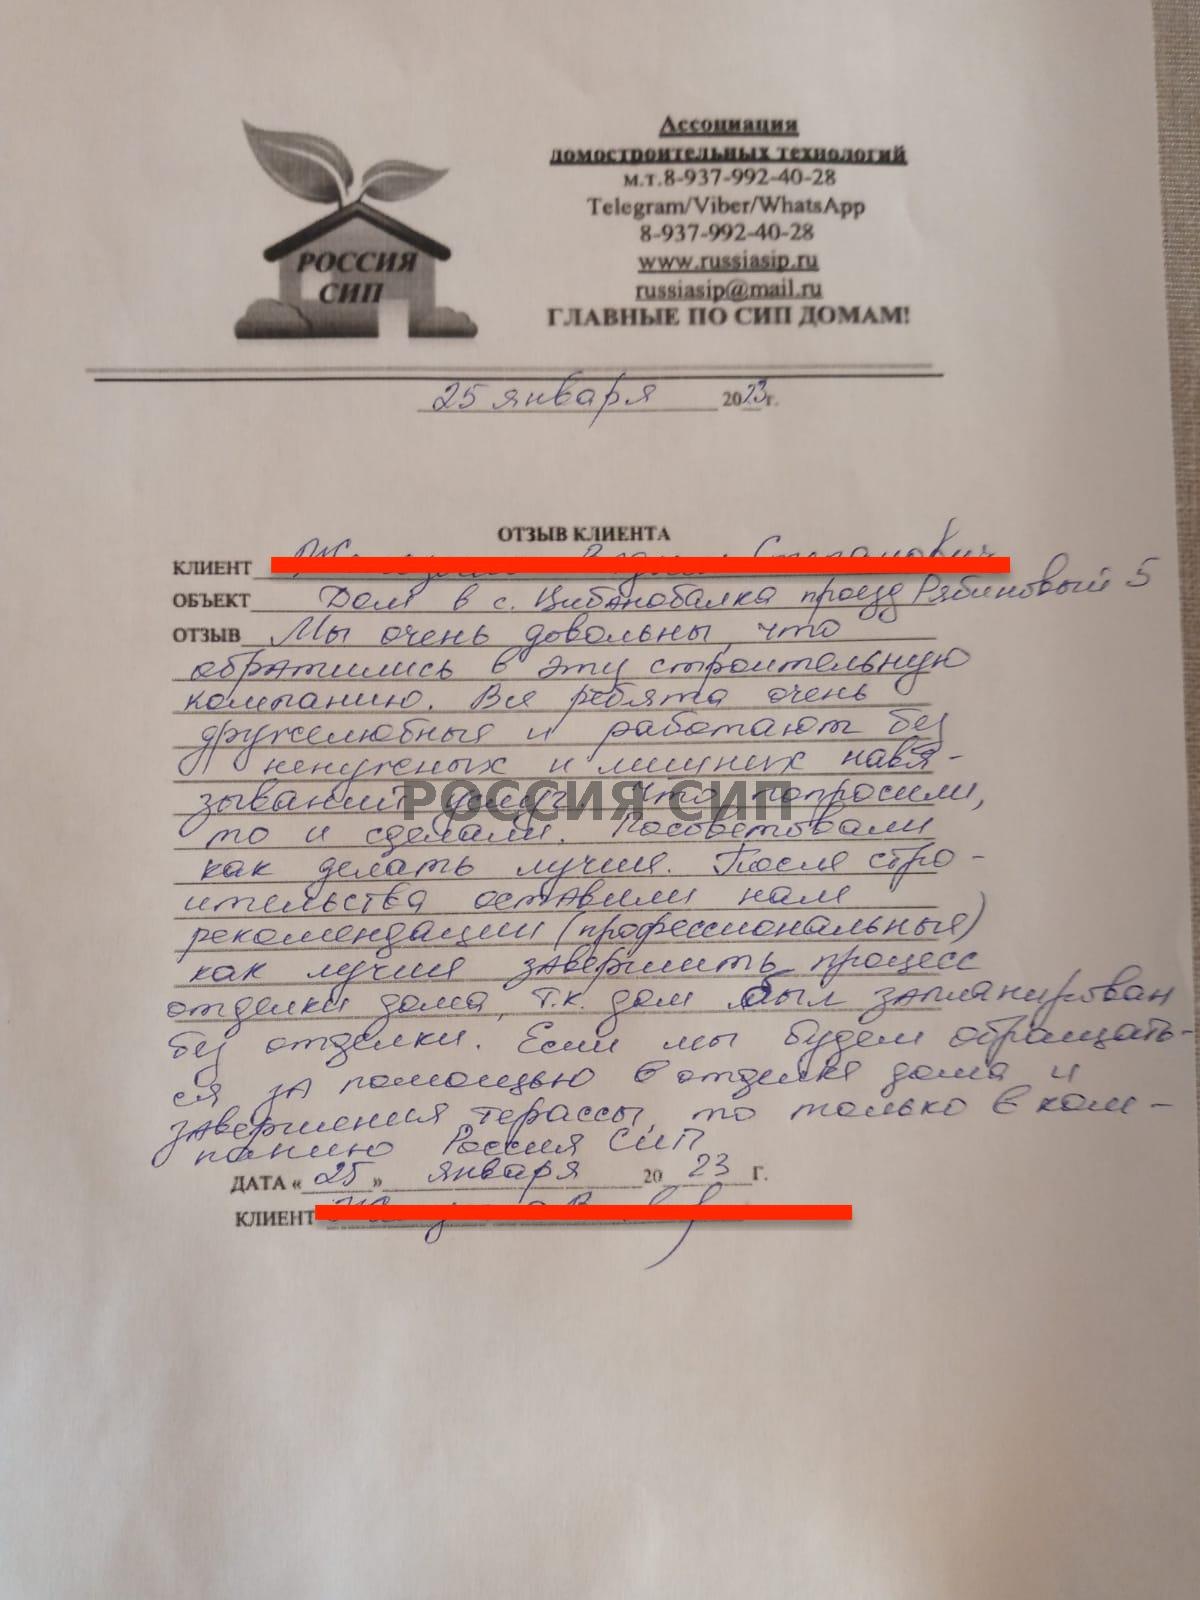 Ассоциация
домостроительных технологий
м.т.8-937-992-40-28
Telegram/Viber/WhatsApp
8-937-992-40-28
www.russiasip.ru
russiasip@mail.ru
ГЛАВНЫЕ ПО СИП ДОМАМ!
РОССИЯ
СИП
25 января 2023г.
ОТЗЫВ КЛИЕНТА
КЛИЕНТ
ОБЪЕКТ Дом в с. Цибанобалка проезд Рябиновый 5
ОТЗЫВ Мы очень довольны, что
обратились в эту строительную
компанию. Все ребята очень
дружелюбные и работают без
ненужных и лишних навя-
зываний услуг. Что попросили,
то и сделали. Посоветовали
как делать лучше. После стро-
ительства оставили нам
рекомендации (профессиональные)
как лучше завершить процесс
отделки дома, т.к. дом был запланирован
без отделки. Если мы будем обращать-
ся за помощью в отделке дома и
завершения терассы, то только в ком-
панию Россия СИП
ДАТА «25» января 2023 г.
КЛИЕНТ
РОССИЯ СИП